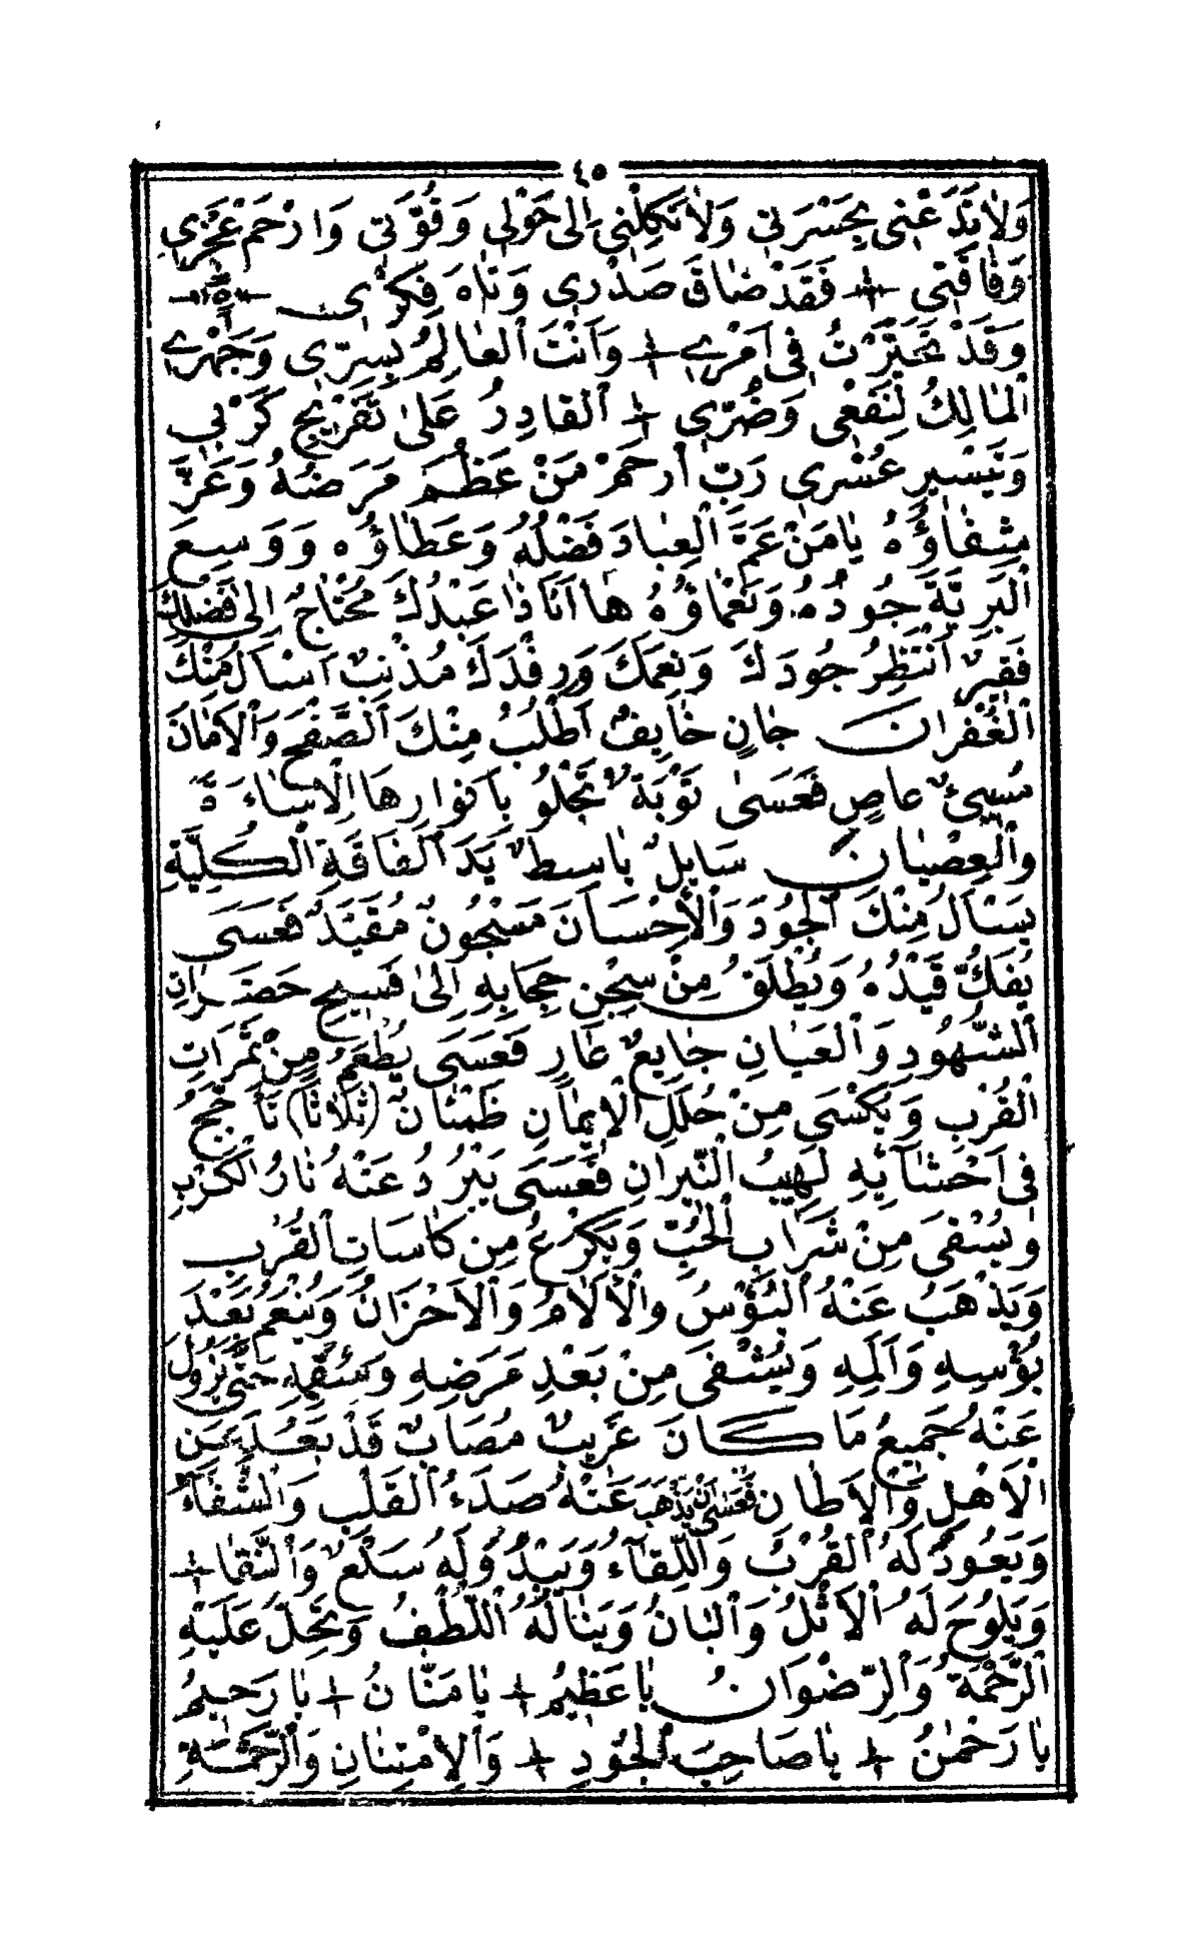 ٤٥
وَلَا تَدَعْنِي بِحَسْرَتِي وَلَا تَكِلْنِي إِلَى حَوْلِي وَقُوَّتِي وَارْحَمْ عَجْزِي
وَفَاقَتِي + فَقَدْ ضَاقَ صَدْرِي وَتَاهَ فِكْرِي
وَقَدْ تَحَيَّرْتُ فِي أَمْرِي + وَأَنْتَ الْعَالِمُ بِسِرِّي وَجَهْرِي
الْمَالِكُ لِنَفْعِي وَضُرِّي + الْقَادِرُ عَلَى تَفْرِيجِ كَرْبِي
وَتَيْسِيرِ عُسْرِي رَبِّ ارْحَمْ مَنْ عَظُمَ مَرَضُهُ وَعَزَّ
شِفَاؤُهُ يَا مَنْ عَمَّ الْعِبَادَ فَضْلُهُ وَعَطَاؤُهُ وَوَسِعَ
الْبَرِيَّةَ جُودُهُ وَنَعْمَاؤُهُ هَا أَنَا ذَا عَبْدُكَ مُحْتَاجٌ إِلَى فَضْلِكَ
فَقِيرٌ أَنْتَظِرُ جُودَكَ وَنِعَمَكَ وَرِفْدَكَ مُذْنِبٌ أَسْأَلُ مِنْكَ
الْغُفْرَانَ جَانٍ خَايِفٌ أَطْلُبُ مِنْكَ الصَّفْحَ وَالْأَمَانَ
مُسِيءٌ عَاصٍ فَعَسَى تَوْبَةٌ تَجْلُو بِأَنْوَارِهَا الْإِسَاءَةَ
وَالْعِصْيَانَ سَايِلٌ بَاسِطٌ يَدَ الْفَاقَةِ الْكُلِّيَّةِ
يَسْأَلُ مِنْكَ الْجُودَ وَالْإِحْسَانَ مَسْجُونٌ مُقَيَّدٌ فَعَسَى
يُفَكُّ قَيْدُهُ وَيُطْلَقُ مِنْ سِجْنِ حِجَابِهِ إِلَى فَسِيحِ حَضَرَاتِ
الشُّهُودِ وَالْعَيَانِ جَايِعٌ عَارٍ فَعَسَى يُطْعَمُ مِنْ ثَمَرَاتِ
الْقُرْبِ وَيُكْسَى مِنْ حُلَلِ الْإِيمَانِ ظَمْئَانٌ (ثَلَاثًا) تَأَجَّجُ
فِي أَحْشَائِهِ لَهِيبُ النِّيرَانِ فَعَسَى يَبْرُدُ عَنْهُ نَارُ الْكَرْبِ
وَيُسْقَى مِنْ شَرَابِ الْحُبِّ وَيَكْرَعُ مِنْ كَاسَاتِ الْقُرْبِ
وَيَذْهَبُ عَنْهُ الْبُؤْسُ وَالْآلَامُ وَالْأَحْزَانُ وَيُنْعَمُ بَعْدَ
بُؤْسِهِ وَأَلَمِهِ وَيُشْفَى مِنْ بَعْدِ مَرَضِهِ وَسُقْمِهِ حَتَّى يَزُولَ
عَنْهُ جَمِيعُ مَا كَانَ غَرِيبٌ مُصَابٌ قَدْ بَعُدَ عَنِ
الْأَهْلِ وَالْأَطَانِ فَعَسَى أَنْ يَذْهَبَ عَنْهُ صَدَءُ الْقَلْبِ وَالشَّقَاءُ
وَيَعُودُ لَهُ الْقُرْبُ وَاللِّقَاءُ وَيَبْدُو لَهُ سَلْعٌ وَالنَّقَا +
وَيَلُوحَ لَهُ الْأَثْلُ وَالْبَانُ وَيَنَالُهُ اللُّطْفُ وَتَحُلَّ عَلَيْهِ
الرَّحْمَةُ وَالرِّضْوَانُ يَا عَظِيمُ + يَا مَنَّانُ + يَا رَحِيمُ
يَا رَحْمٰنُ + يَا صَاحِبَ الْجُودِ + وَالْإِمْتِنَانِ وَالرَّحْمَةِ